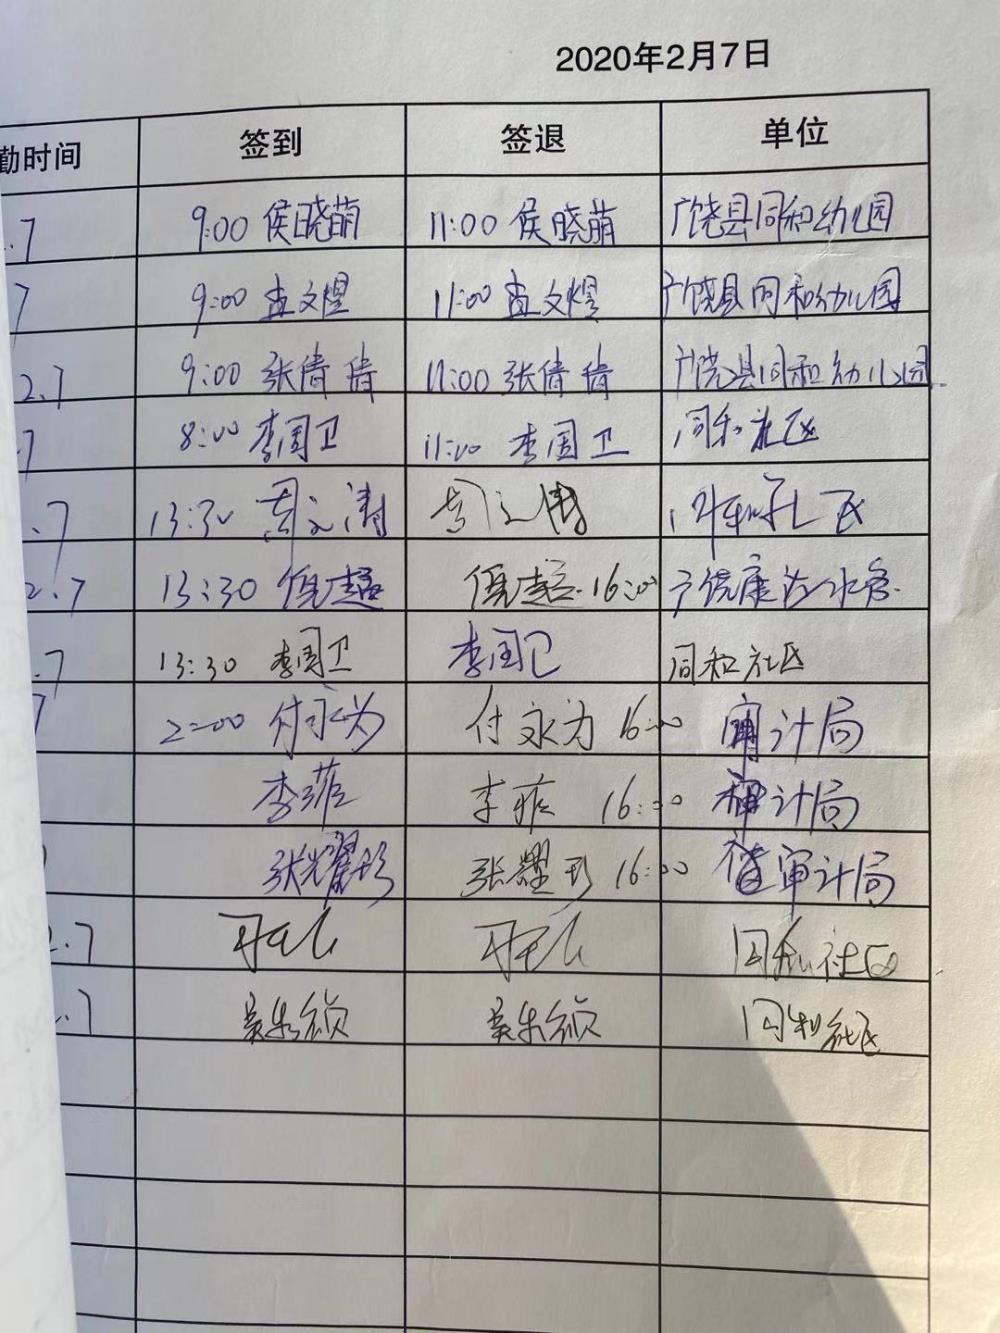 2020年2月7日
勤时间 签到 签退 单位
.7 9:00 侯晓萌 11:00 侯晓萌 广饶县同和幼儿园
7 9:00 孟文煜 11:00 孟文煜 广饶县同和幼儿园
2.7 9:00 张倩倩 11:00 张倩倩 广饶县同和幼儿园
7 8:00 李国卫 11:00 李国卫 同和社区
.7 13:30
2.7 13:30 倪超 倪超 16:00 广饶康达水务
.7 13:30 李国卫 李国卫 同和社区
7 2:00 付永为 付永为 16:00 审计局
李菲 李菲 16:00 审计局
张耀彤 张耀彤 16:00 审计局
2.7 同和社区
2.7 同和社区